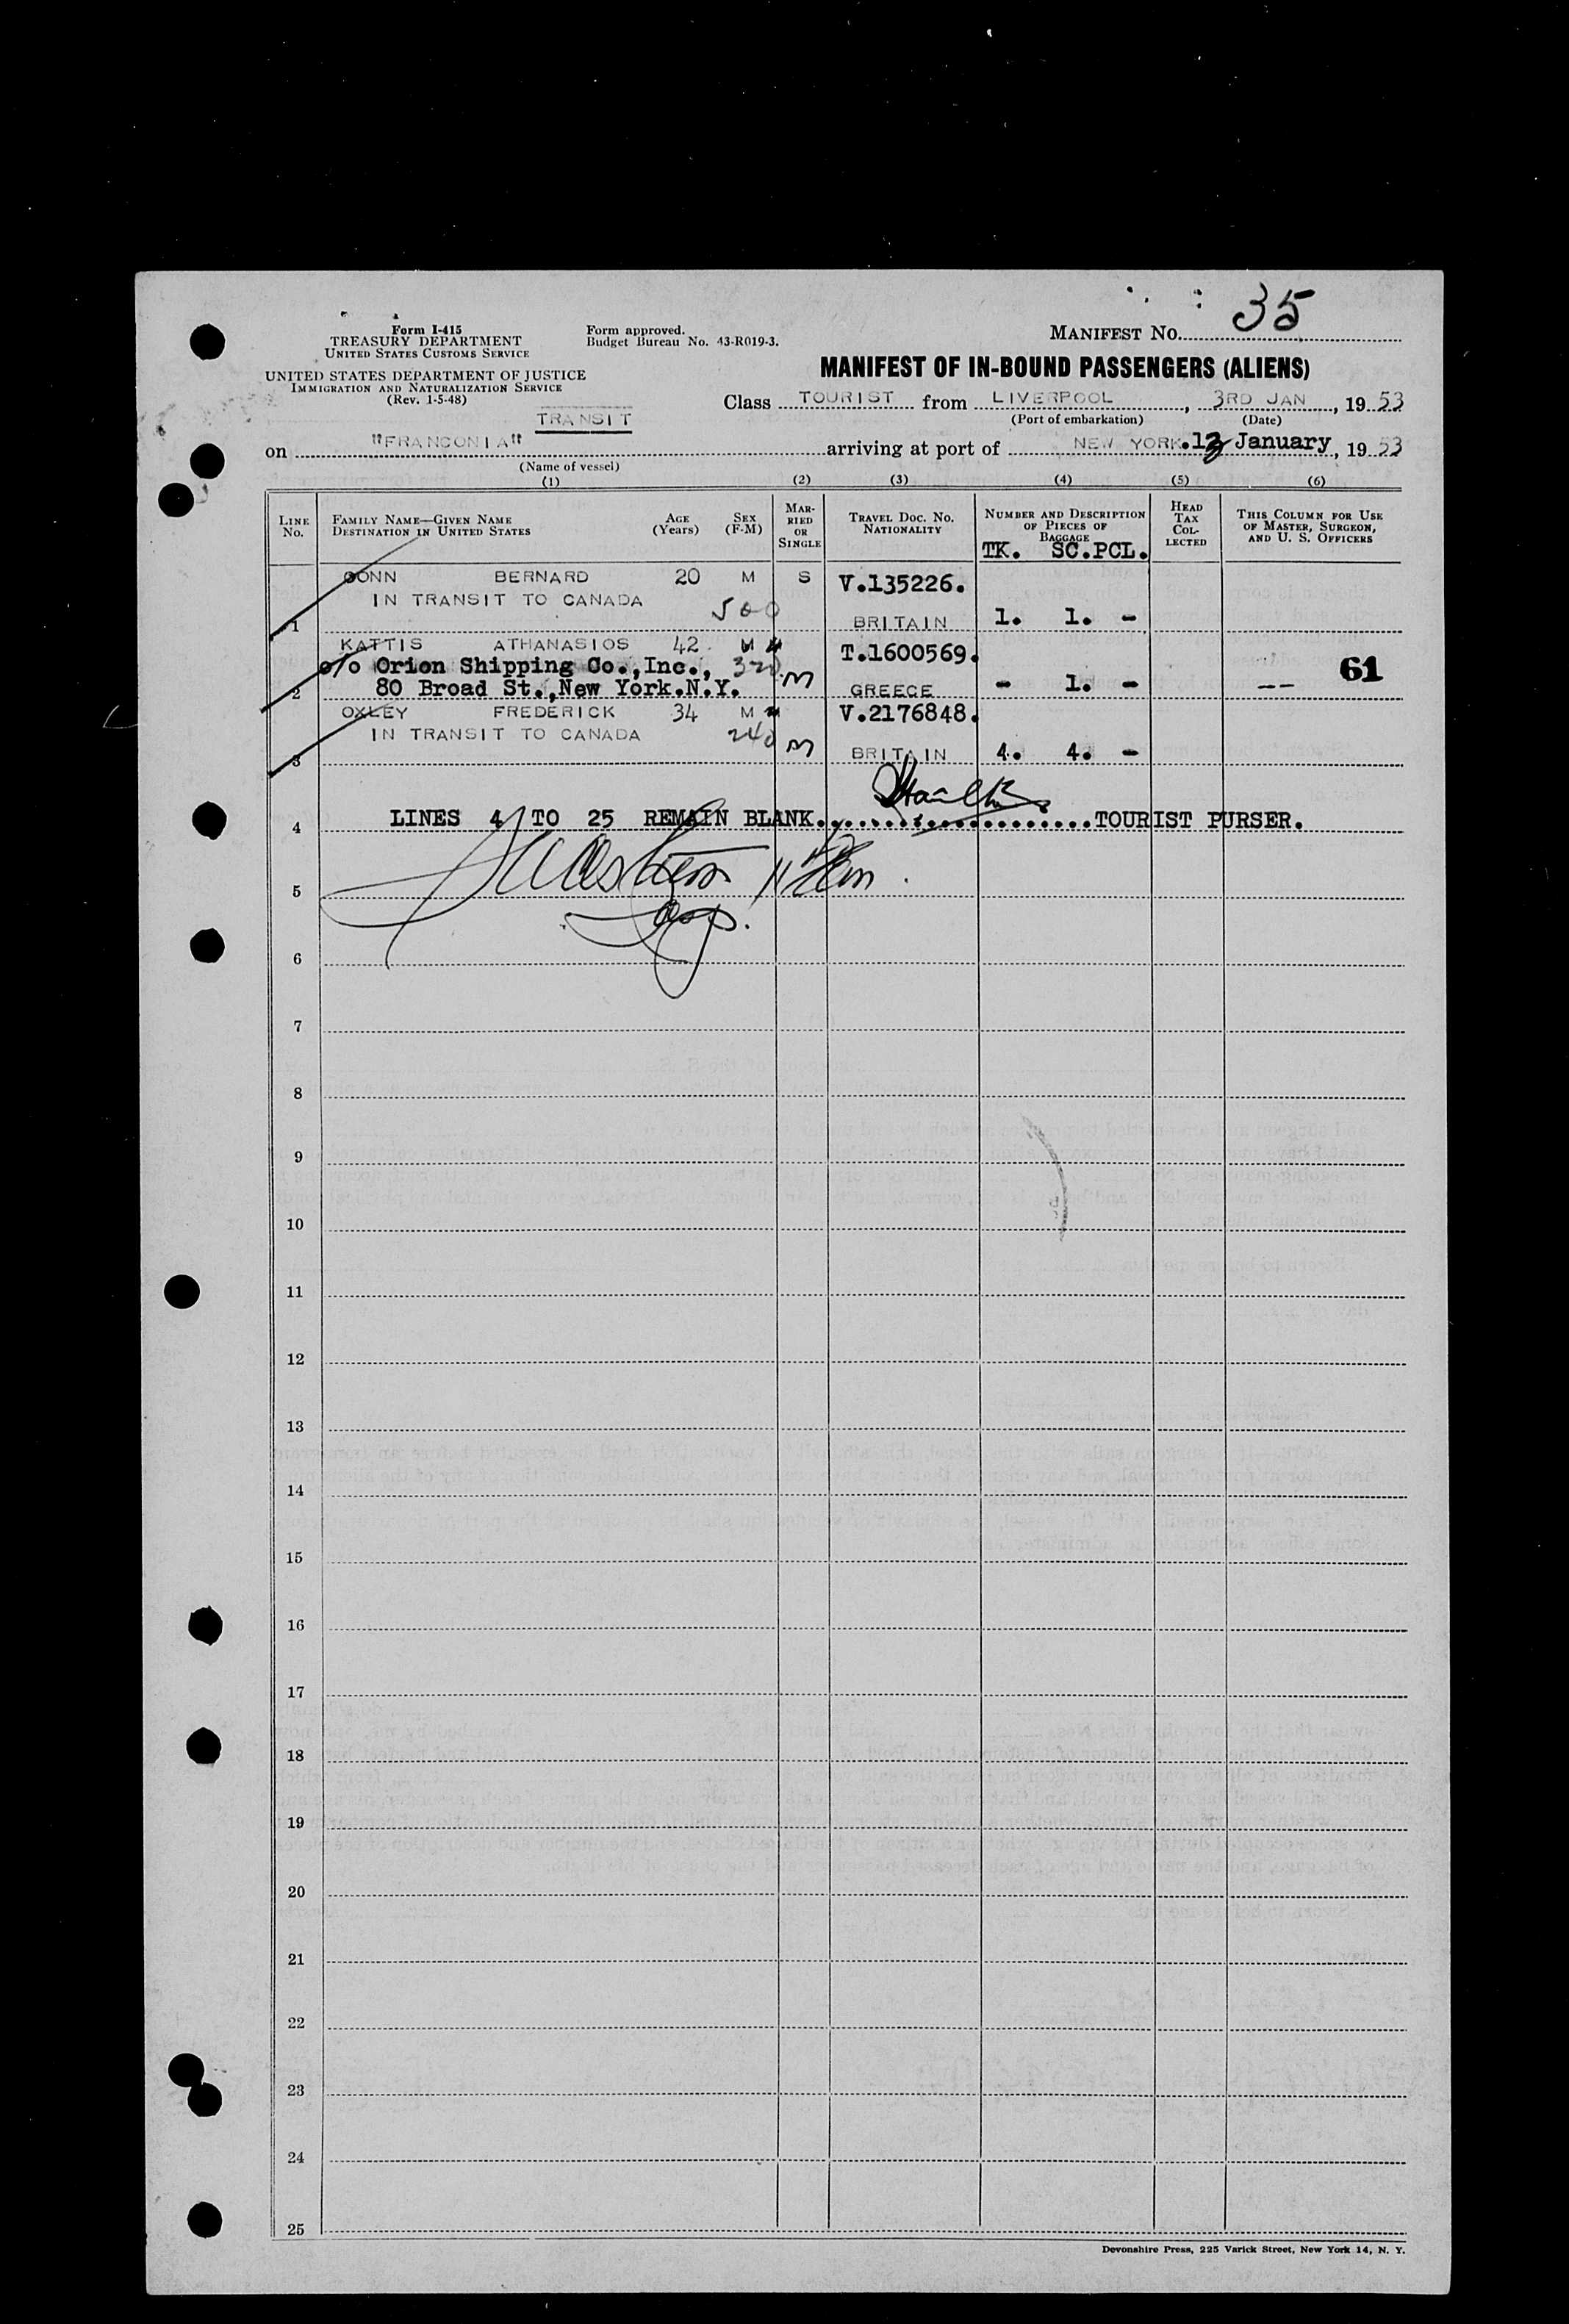 35
Form I-415
TREASURY DEPARTMENT
UNITED STATES CUSTOMS SERVICE
Form approved.
Budget Bureau No. 43-R019-3.
MANIFEST No.
UNITED STATES DEPARTMENT OF JUSTICE
IMMIGRATION AND NATURALIZATION SERVICE
(Rev. 1-5-48)
MANIFEST OF IN-BOUND PASSENGERS (ALIENS)
TRANSIT
Class TOURIST from LIVERPOOL, 3RD JAN, 19 53
(Port of embarkation) (Date)
on "FRANCONIA" arriving at port of NEW YORK. 13 January, 19 53
(Name of vessel)
(1) (2) (3) (4) (5) (6)
LINE No.
FAMILY NAME—GIVEN NAME
DESTINATION IN UNITED STATES
AGE (Years)
SEX (F-M)
MARRIED OR SINGLE
TRAVEL DOC. NO. NATIONALITY
NUMBER AND DESCRIPTION OF PIECES OF BAGGAGE
TK. SC. PCL.
HEAD TAX COLLECTED
THIS COLUMN FOR USE OF MASTER, SURGEON, AND U. S. OFFICERS
BERNARD 20 M S V.135226.
IN TRANSIT TO CANADA 500
1 BRITAIN 1. 1. -
KATTIS ATHANASIOS 42 M T.1600569.
c/o Orion Shipping Co.,Inc., 320 M
2 80 Broad St.,New York.N.Y. GREECE - 1. - -- 61
OXLEY FREDERICK 34 M V.2176848.
IN TRANSIT TO CANADA 240 M
3 BRITAIN 4. 4. -
4 LINES 4 TO 25 REMAIN BLANK. TOURIST PURSER.
5
6
7
8
9
10
11
12
13
14
15
16
17
18
19
20
21
22
23
24
25
Devonshire Press, 225 Varick Street, New York 14, N. Y.